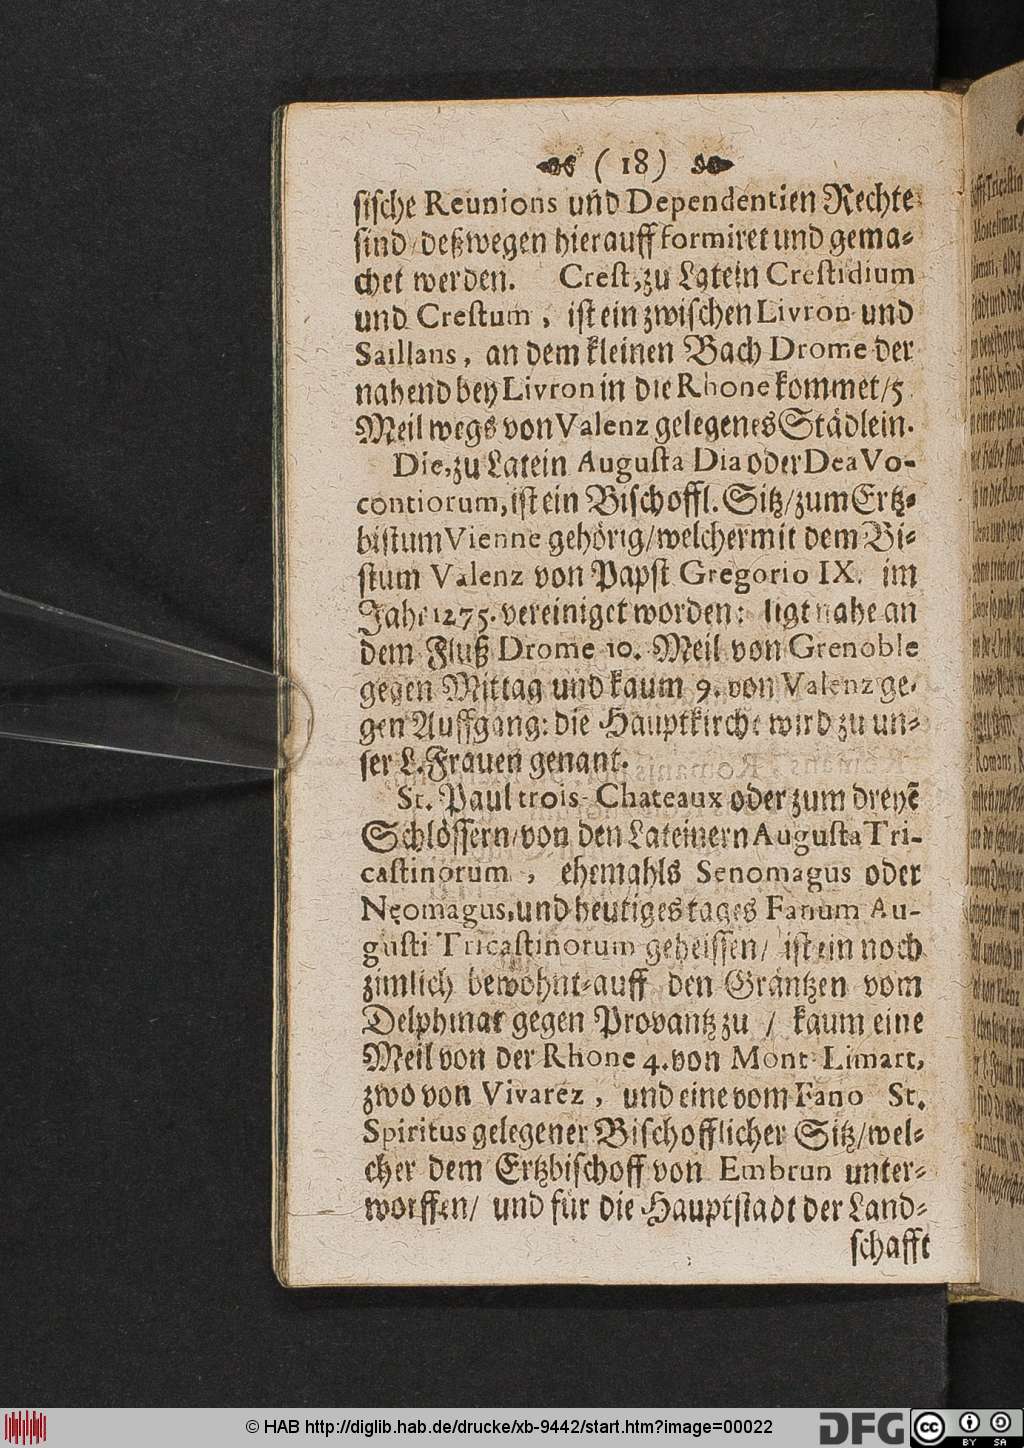 ( 18 )
sische Reunions und Dependentien Rechte
sind/ deßwegen hierauff formiret und gema-
chet werden. Crest, zu Latein Crestidium
und Crestum, ist ein zwischen Livron und
Saillans, an dem kleinen Bach Drome der
nahend bey Livron in die Rhone kommet/ 5
Meil wegs von Valenz gelegenes Städlein.
Die, zu Latein Augusta Dia oder Dea Vo-
contiorum, ist ein Bischoffl. Sitz/ zum Ertz-
bistum Vienne gehörig/ welcher mit dem Bi-
stum Valenz von Papst Gregorio IX. im
Jahr 1275. vereiniget worden: ligt nahe an
dem Fluß Drome 10. Meil von Grenoble
gegen Mittag und kaum 9. von Valenz ge-
gen Auffgang: die Hauptkirche wird zu un-
ser L. Frauen genant.
St. Paul trois Chateaux oder zum dreyē
Schlössern/ von den Lateinern Augusta Tri-
castinorum, ehemahls Senomagus oder
Neomagus, und heutiges tages Fanum Au-
gusti Tricastinorum geheissen/ ist ein noch
zimlich bewohnt-auff den Gräntzen vom
Delphinat gegen Provantz zu / kaum eine
Meil von der Rhone 4. von Mont-Limart,
zwo von Vivarez, und eine vom Fano St.
Spiritus gelegener Bischofflicher Sitz/ wel-
cher dem Ertzbischoff von Embrun unter-
worffen/ und für die Hauptstadt der Land-
schafft
© HAB http://diglib.hab.de/drucke/xb-9442/start.htm?image=00022
DFG
cc BY SA